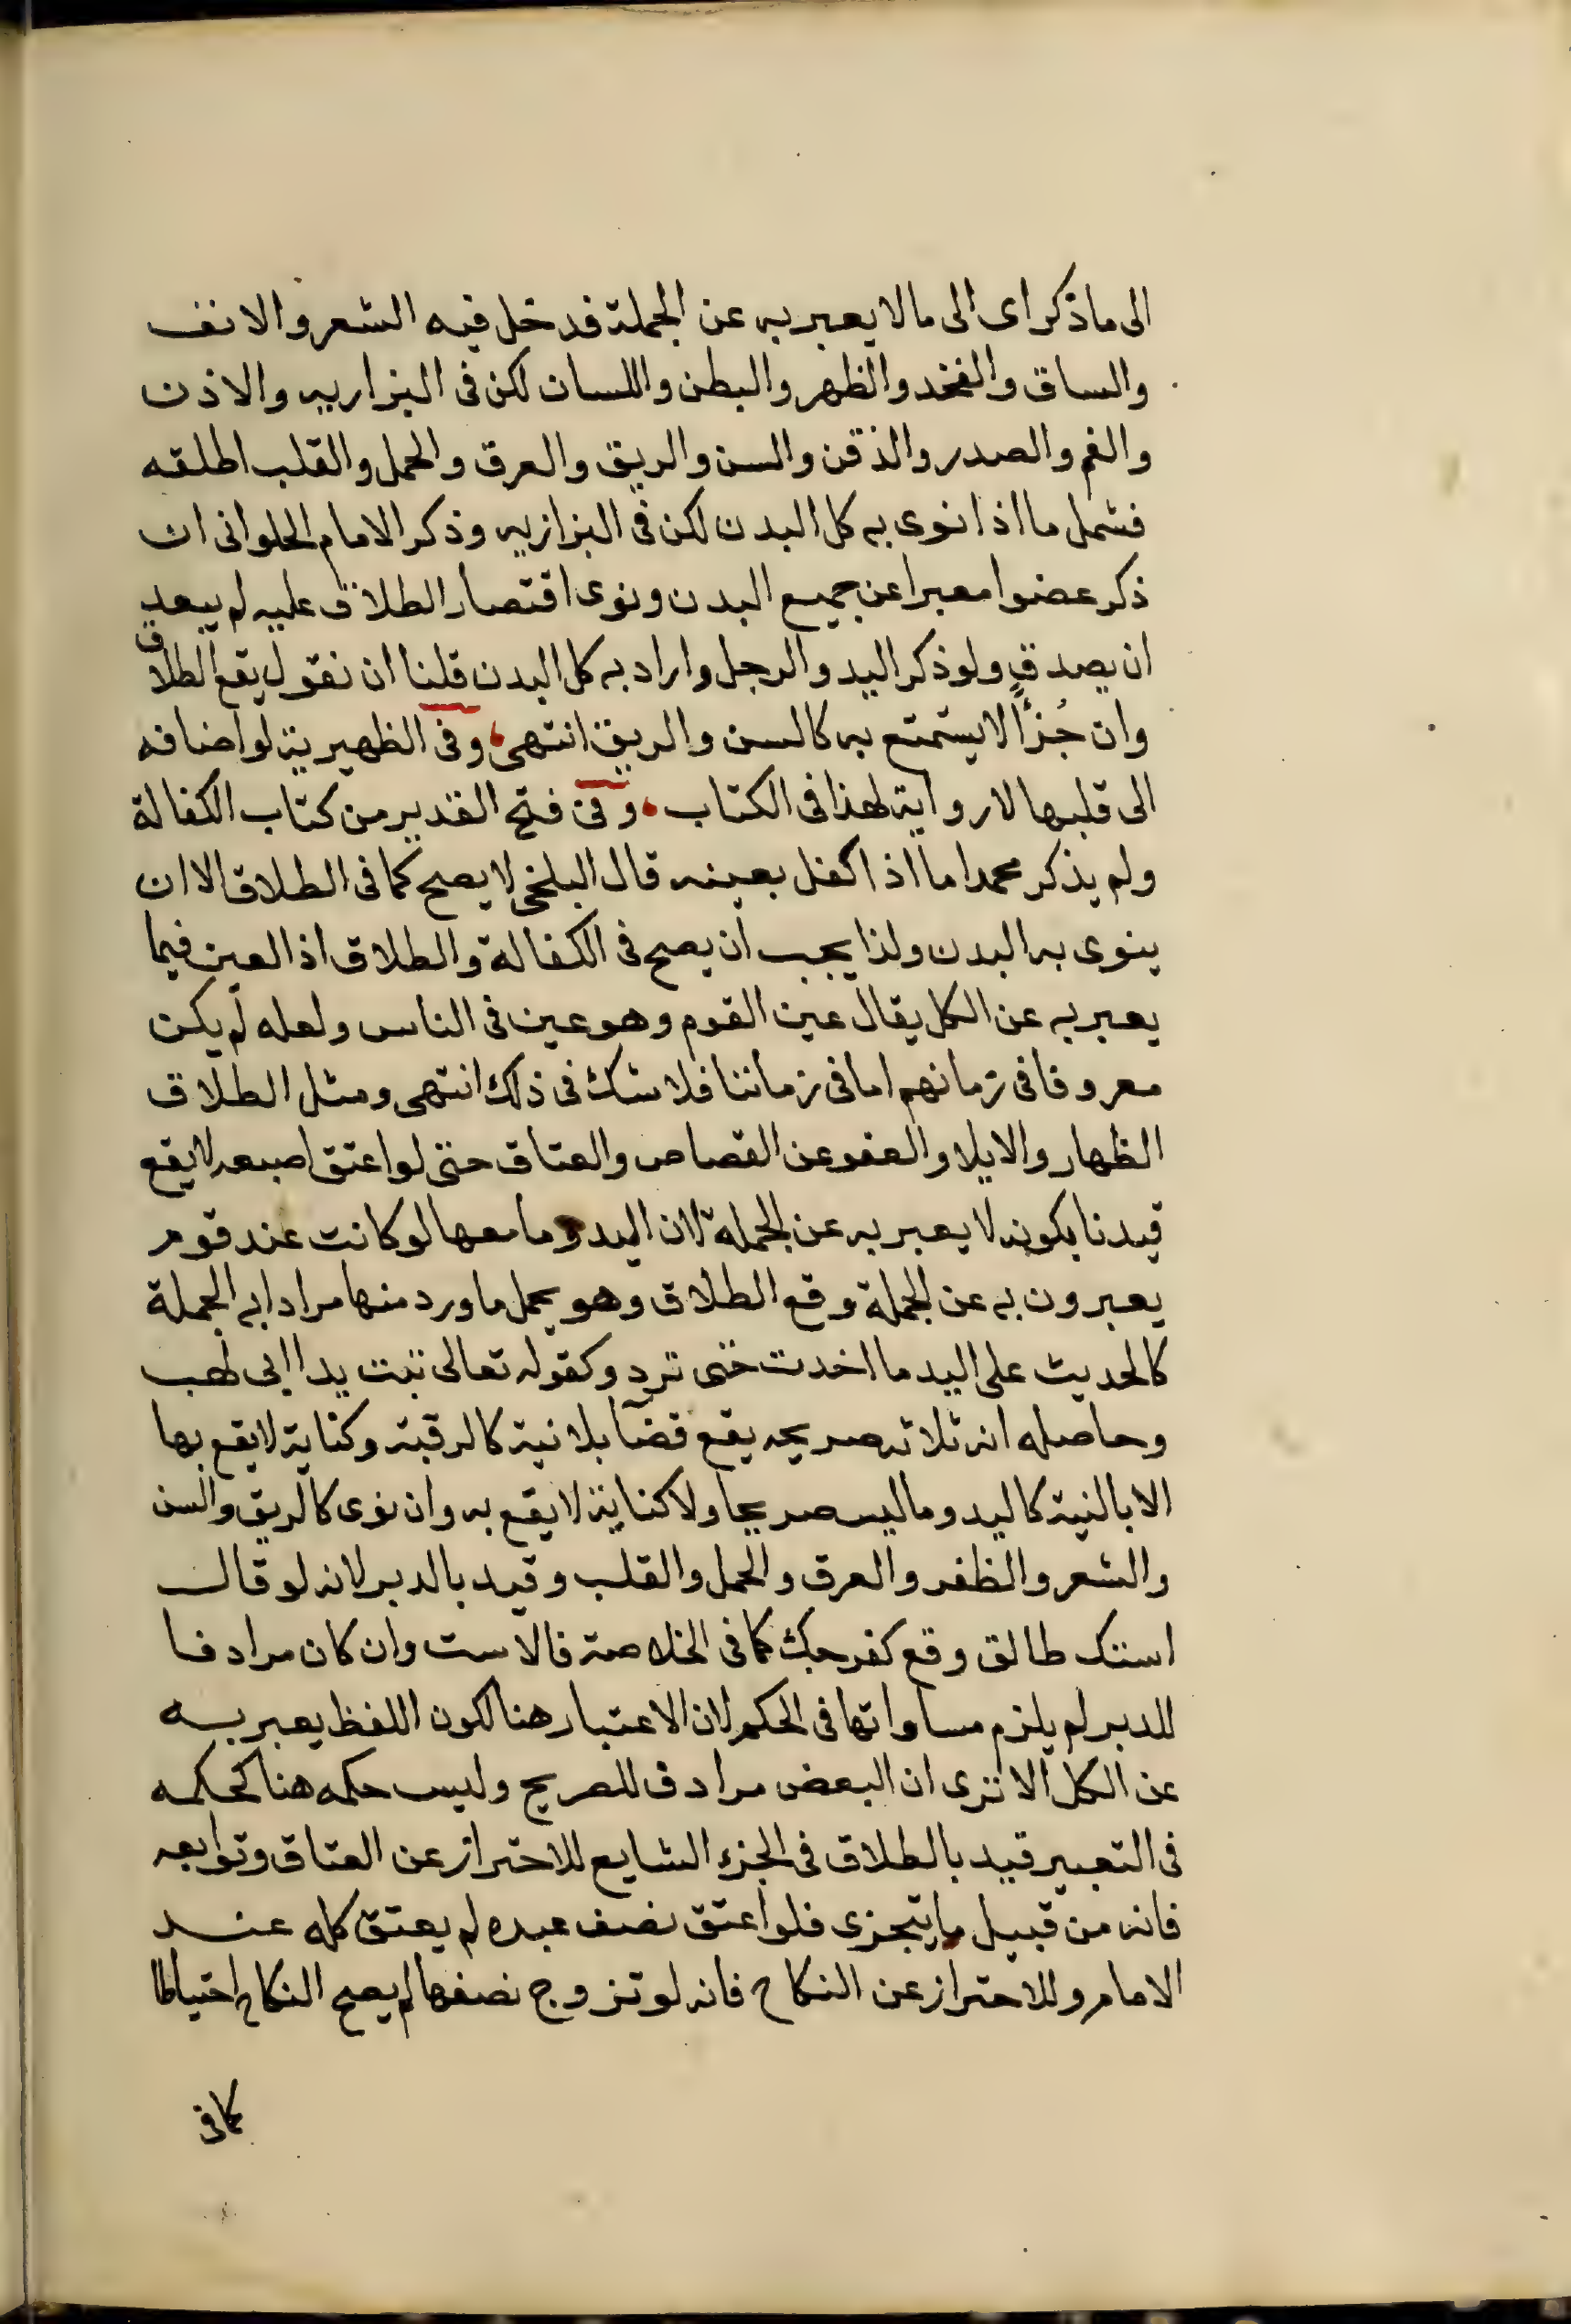 الى ما ذكر اى الى ما لا يعبر به عن الجملة فدخل فيه الشعر والانف
والساق والفخد والظهر والبطن واللسان لكن فى البزاريه والاذن
والفم والصدر والذقن والسن والريق والعرق والحمل والقلب اطلقه
فشمل ما اذا نوى به كل البدن لكن فى البزازيه وذكر الامام الحلوانى ان
ذكر عضوا معبرا عن جميع البدن ونوى اقتصار الطلاق عليه لم يبعد
ان يصدق ولو ذكر اليد والرجل واراد به كل البدن قلنا ان نقول يقع الطلاق
وان جُزأً لا يستمتع به كالسن والريق انتهى، وفى الظهيرية لو اضافه
الى قلبها لا رواية لهذا فى الكتاب، وفى فتح القدير من كتاب الكفالة
ولم يذكر محمد اما اذا كفل بعينه قال البلخى لا يصح كما فى الطلاق الا ان
ينوى به البدن ولذا يجب ان يصح فى الكفالة والطلاق اذ العين فيما
يعبر به عن الكل يقال عين القوم وهو عين فى الناس ولعله لم يكن
معروفا فى زمانهم اما فى زماننا فلا شك فى ذلك انتهى ومثل الطلاق
الظهار والايلا والعفو عن القصاص والعتاق حتى لو اعتق اصبعه لا يقع
قيدنا بكونه لا يعبر به عن الجملة لان اليد وما معها لو كانت عند قوم
يعبرون به عن الجملة وقع الطلاق وهو يحمل ما ورد منها مرادا به الجملة
كالحديث على اليد ما اخدت حتى ترد وكقوله تعالى تبت يدا ابى لهب
وحاصله انه ثلاثه صريحه يقع قضآ بلا نية كالرقبة وكناية لا يقع بها
الا بالنية كاليد وما ليس صريحا ولا كناية لا يقع به وان نوى كالريق والسن
والشعر والظفر والعرق والحمل والقلب وقيد بالدبر لانه لو قال
استك طالق وقع كفرجك كما فى الخلاصة فالاست وان كان مرادفا
للدبر لم يلزم مساواتها فى الحكم لان الاعتبار هنا لكون اللفظ يعبر به
عن الكل الا ترى ان البعض مرادف للصريح وليس حكمه هنا كحكمه
فى التعبير قيد بالطلاق فى الجزء الشايع للاحتراز عن العتاق وتوابعه
فانه من قبيل ما يتجزى فلو اعتق نصف عبده لم يعتق كله عند
الامام وللاحتراز عن النكاح فانه لو تزوج نصفها لم يصح النكاح احتياطا
كما فى